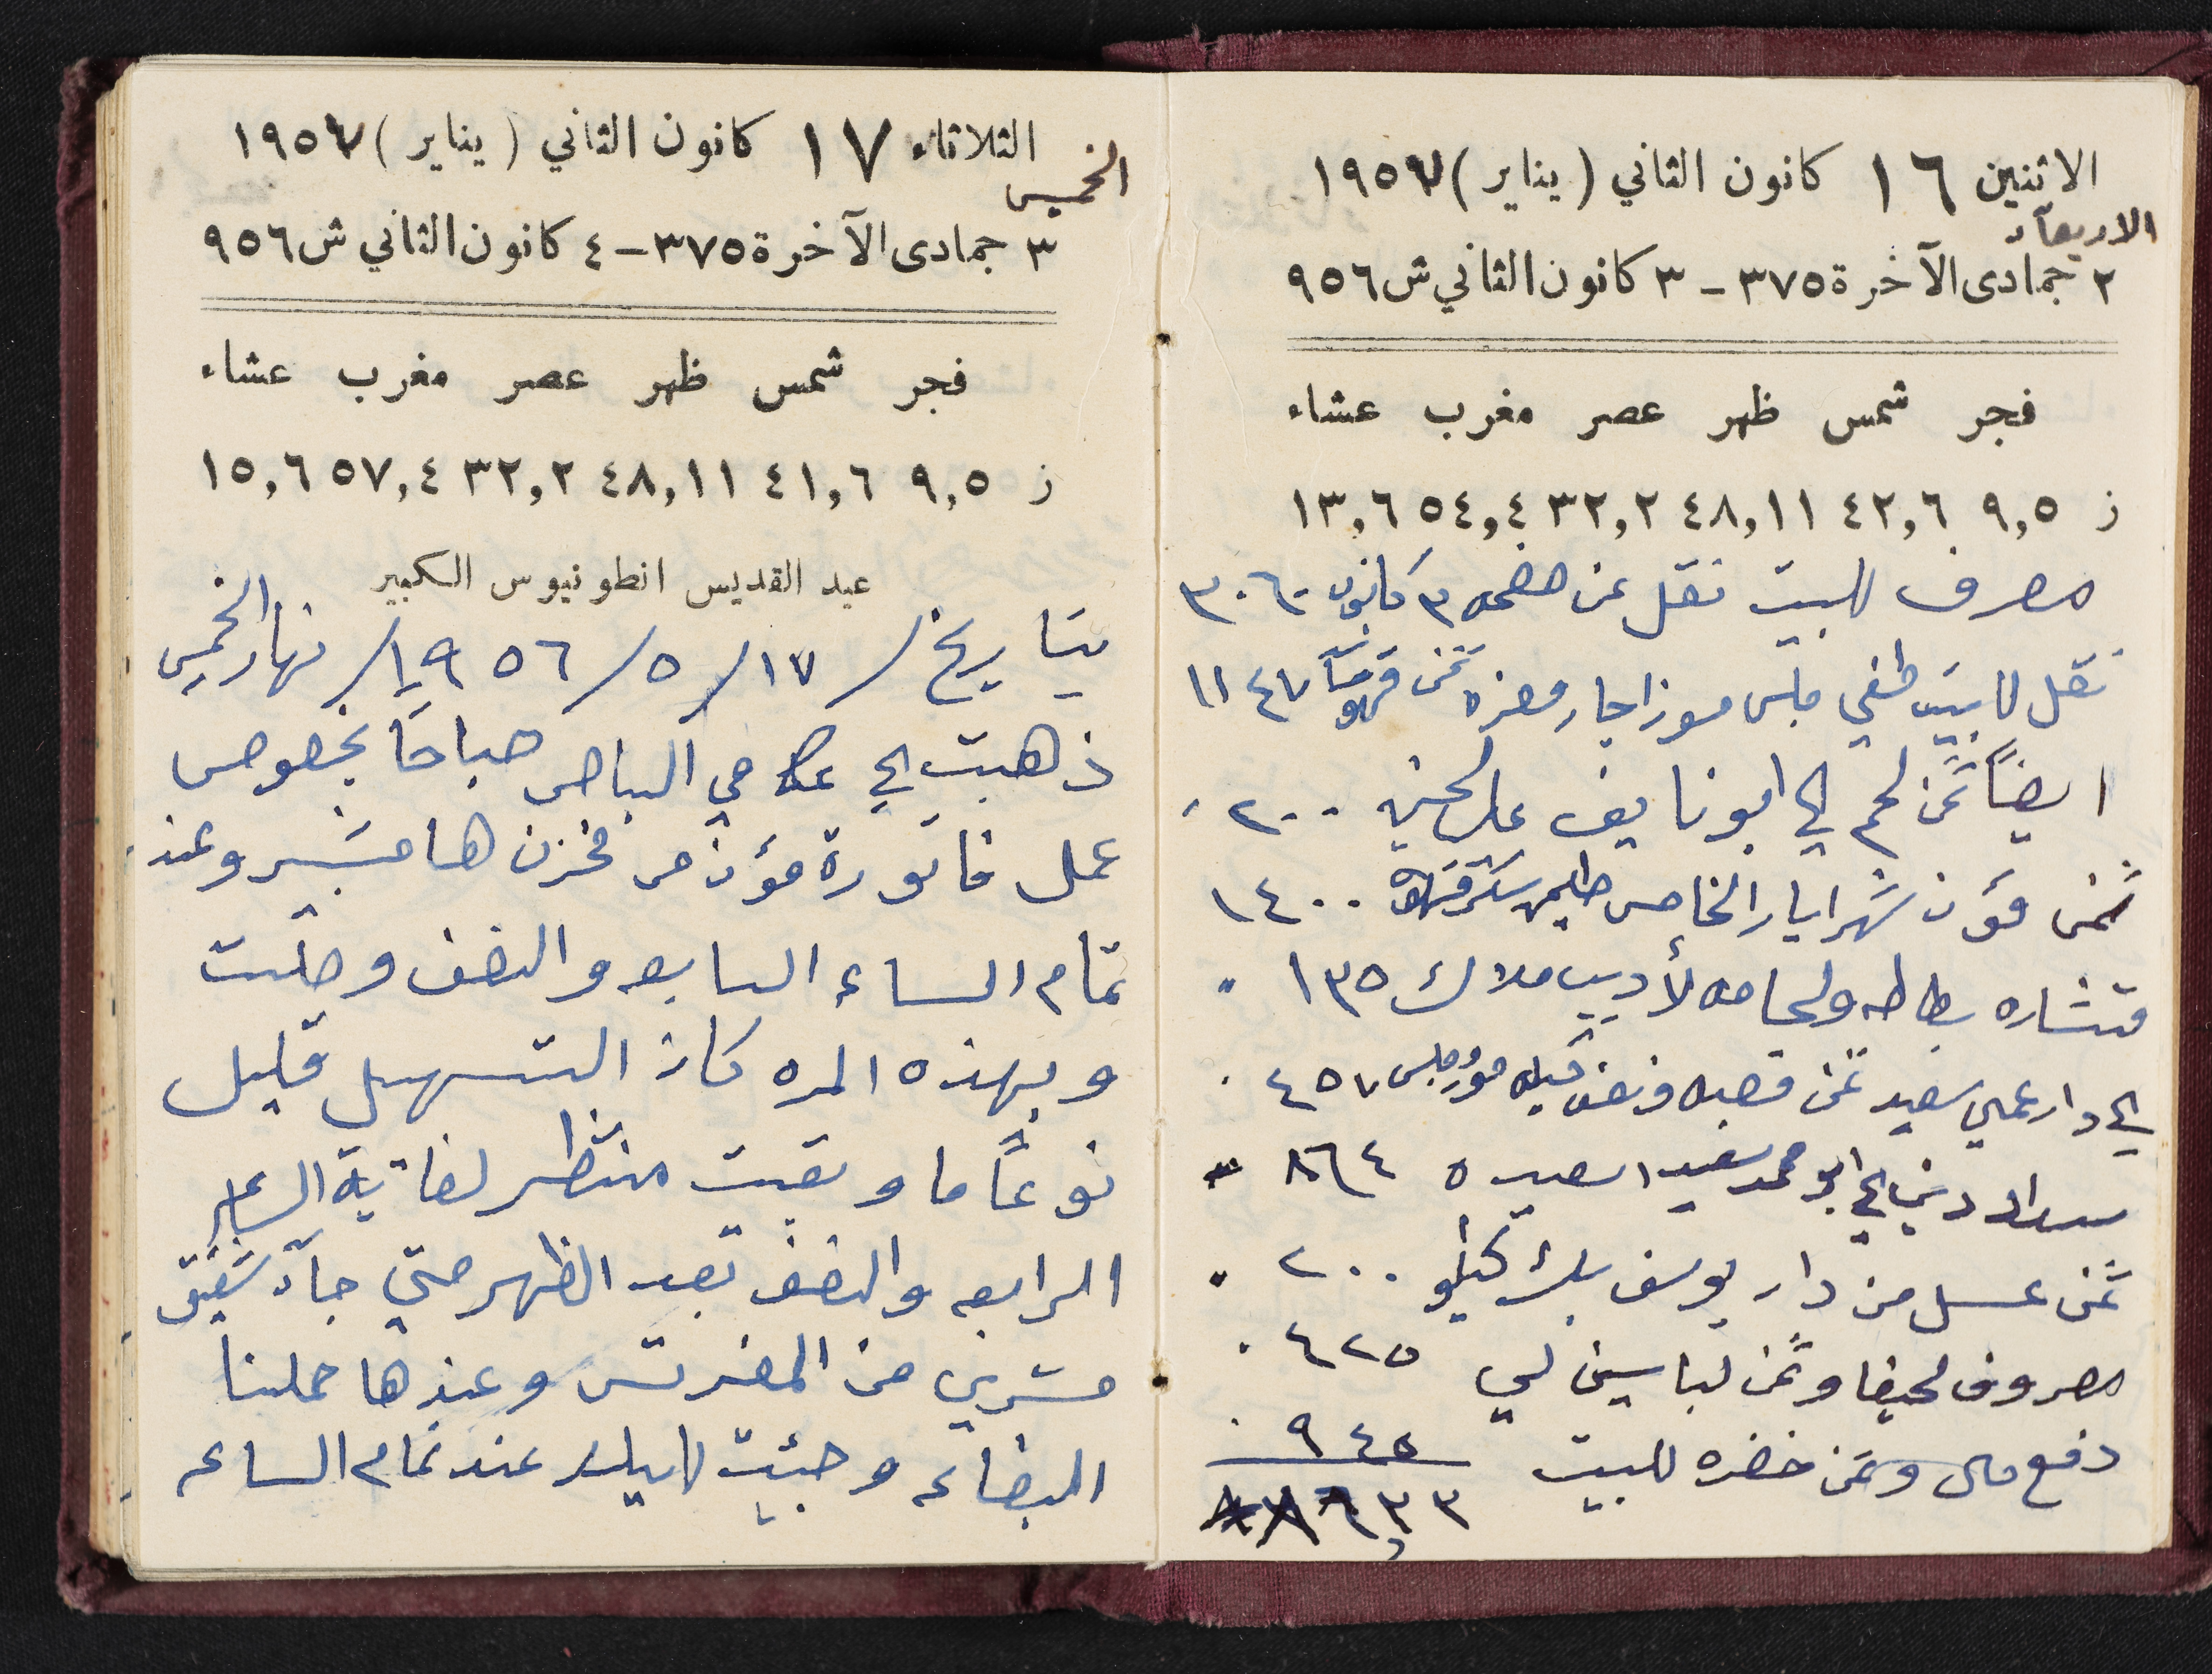 الاثنين ١٦ كانون الثاني (يناير) ١٩٥٧
الاربعآء
٢ جمادى الآخرة ٣٧٥ – ٣ كانون الثاني ش ٩٥٦
فجر شمس ظهر عصر مغرب عشاء
ز ٩,٥ ٤٢,٦ ٤٨,١١ ٣٢,٢ ٥٤,٤ ١٣,٦
مصرف للبيت نقل عن صفحه ٣ كانون ٣٠٦٠
نقل لابيب طفي ملس موزا جار وهزه ثمن قهوة ١١٤٧
ايضاً ثمن لحم الى ابو نايف علي الحسن ٢٠٠
ثمن مؤن شهر ايار الخامس طحين سكر قهوة ١٤٠٠
قنشاره بطاطه ولجامه لأديب ملاك ١٣٥ "
الى دار عمي سعيد ثمن قصبه ونصف كيله ٤٥٧
سداد ديني الى ابو محمد سعيد اسعيده ٨٦٤ "
ثمن عسل من دار يوسف بك ٢٠٠ "
مصروف لحيفا وثمن لباسين لي ٤٢٥
دفع مال وثمن خضره للبيت ٩٤٥
٦٣٣
الثلاثاء ١٧ كانون الثاني (يناير) ١٩٥٧
الخميس
٣ جمادى الآخرة ٣٧٥ – ٤ كانون الثاني ش ٩٥٦
فجر شمس ظهر عصر مغرب عشاء
ز ٩,٥ ٤١,٦ ٤٨,١١ ٣٢,٢ ٥٧,٤ ١٥,٦
عيد القديس انطونيوس الكبير
بتاريخ / ١٧ / ٥ / ١٩٥٦ / نهار الخميس
ذهبت الى عكا في الباص صباحاً بخصوص
عمل فاتورة مؤن من مخزن هامشبير وعند
تمام الساعه السابعه والنصف وصلت
وبهذه المره كان التسهيل قليل
نوعاً ما وبقيت منتظر لغاية الساعه
الرابعه والنصف بعد الظهر حتى جآء شفيق
مشربي من المفرتس وعندها حملنا
البضاعه وجئت للبلد عند تمام الساعه